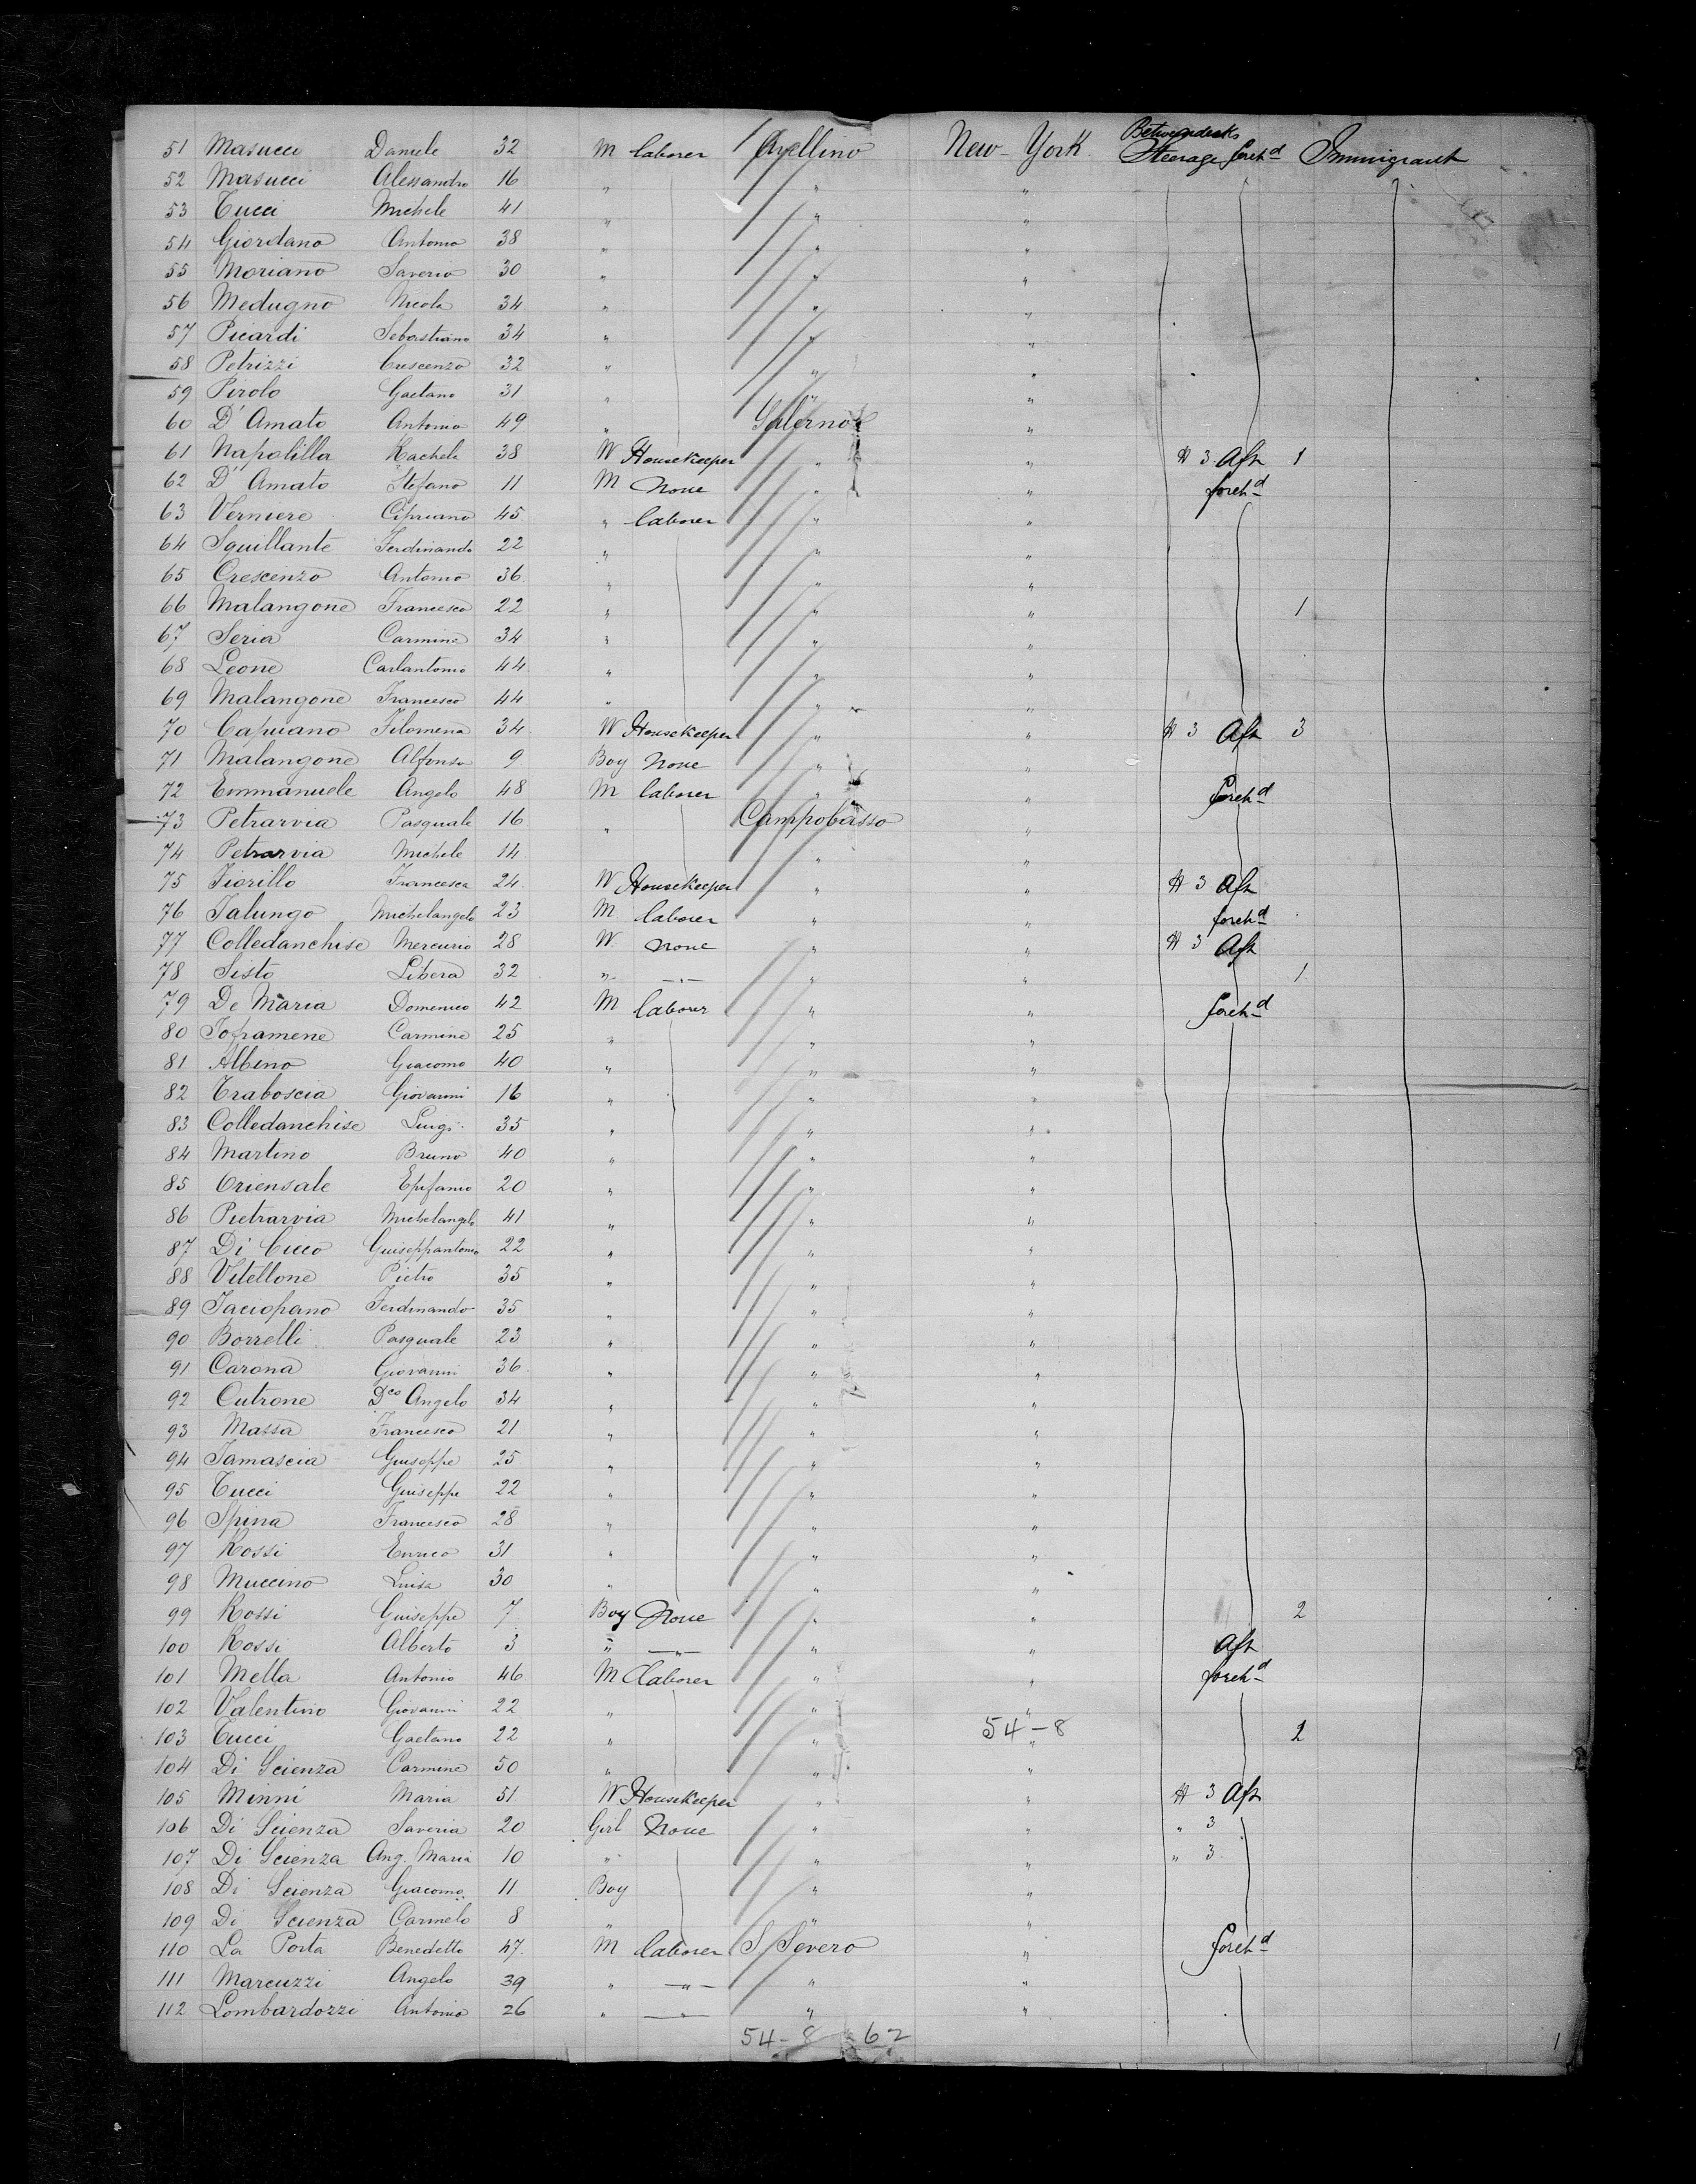 51 Masucci Daniele 32 M laborer Avellino New-York Betweendecks Steerage foreh^d Immigrant
52 Masucci Alessandro 16 " " "
53 Tucci Michele 41 " " "
54 Giordano Antonio 38 " " "
55 Moriano Saverio 30 " " "
56 Medugno Nicola 34 " " "
57 Picardi Sebastiano 34 " " "
58 Petrizzi Crescenzo 32 " " "
59 Pirolo Gaetano 31 " " "
60 D'Amato Antonio 49 " Salerno "
61 Napolilla Rachele 38 W Housekeeper " " H 3 Aft 1
62 D'Amato Stefano 11 M None " " foreh^d
63 Verniere Cipriano 45 " laborer " "
64 Squillante Ferdinando 22 " " "
65 Crescenzo Antonio 36 " " "
66 Malangone Francesco 22 " " " 1
67 Seria Carmine 34 " " "
68 Leone Carlantonio 44 " " "
69 Malangone Francesco 44 " " "
70 Capuano Filomena 34 W Housekeeper " " H 3 Aft 3
71 Malangone Alfonso 9 Boy None " "
72 Emmanuele Angelo 48 M laborer " " foreh^d
73 Petrarvia Pasquale 16 " Campobasso "
74 Petrarvia Michele 14 " "
75 Fiorillo Francesca 24 W Housekeeper " " H 3 Aft
76 Jalungo Michelangelo 23 M laborer " " foreh^d
77 Colledanchise Mercurio 28 W None " " H 3 Aft
78 Sisto Libera 32 " " " " 1
79 De Maria Domenico 42 M laborer " " foreh^d
80 Carmine 25 " " "
81 Albino Giacomo 40 " " "
82 Traboscia Giovanni 16 " " "
83 Colledanchise Luigi 35 " " "
84 Martino Bruno 40 " " "
85 Oriensale Epifanio 20 " " "
86 Pietrarvia Michelangelo 41 " " "
87 Di Cicco Guiseppantonio 22 " " "
88 Vitellone Pietro 35 " " "
89 Ferdinando 35 " " "
90 Borrelli Pasquale 23 " " "
91 Carona Giovanni 36 " " "
92 Cutrone D^co Angelo 34 " " "
93 Massa Francesco 21 " " "
94 Jamascia Giuseppe 25 " " "
95 Tucci Guiseppe 22 " " "
96 Spina Francesco 28 " " "
97 Rossi Enrico 31 " " "
98 Muccino Luisa 30 " " "
99 Rossi Guiseppe 7 Boy None " " 2
100 Rossi Alberto 3 " " " " Aft
101 Mella Antonio 46 M laborer " " foreh^d
102 Valentino Giovanni 22 " " "
103 Tucci Gaetano 22 " " 54-8 " 2
104 Di Scienza Carmine 50 " " "
105 Minni Maria 51 W Housekeeper " " H 3 Aft
106 Di Scienza Saveria 20 Girl None " " " 3
107 Di Scienza Ang. Maria 10 " " " " 3
108 Di Scienza Giacomo 11 Boy " "
109 Di Scienza Carmelo 8 " " "
110 La Porta Benedetto 47 M laborer S Severo " foreh^d
111 Marcuzzi Angelo 39 " " " "
112 Lombardozzi Antonio 26 " " " "
54-8 62
1